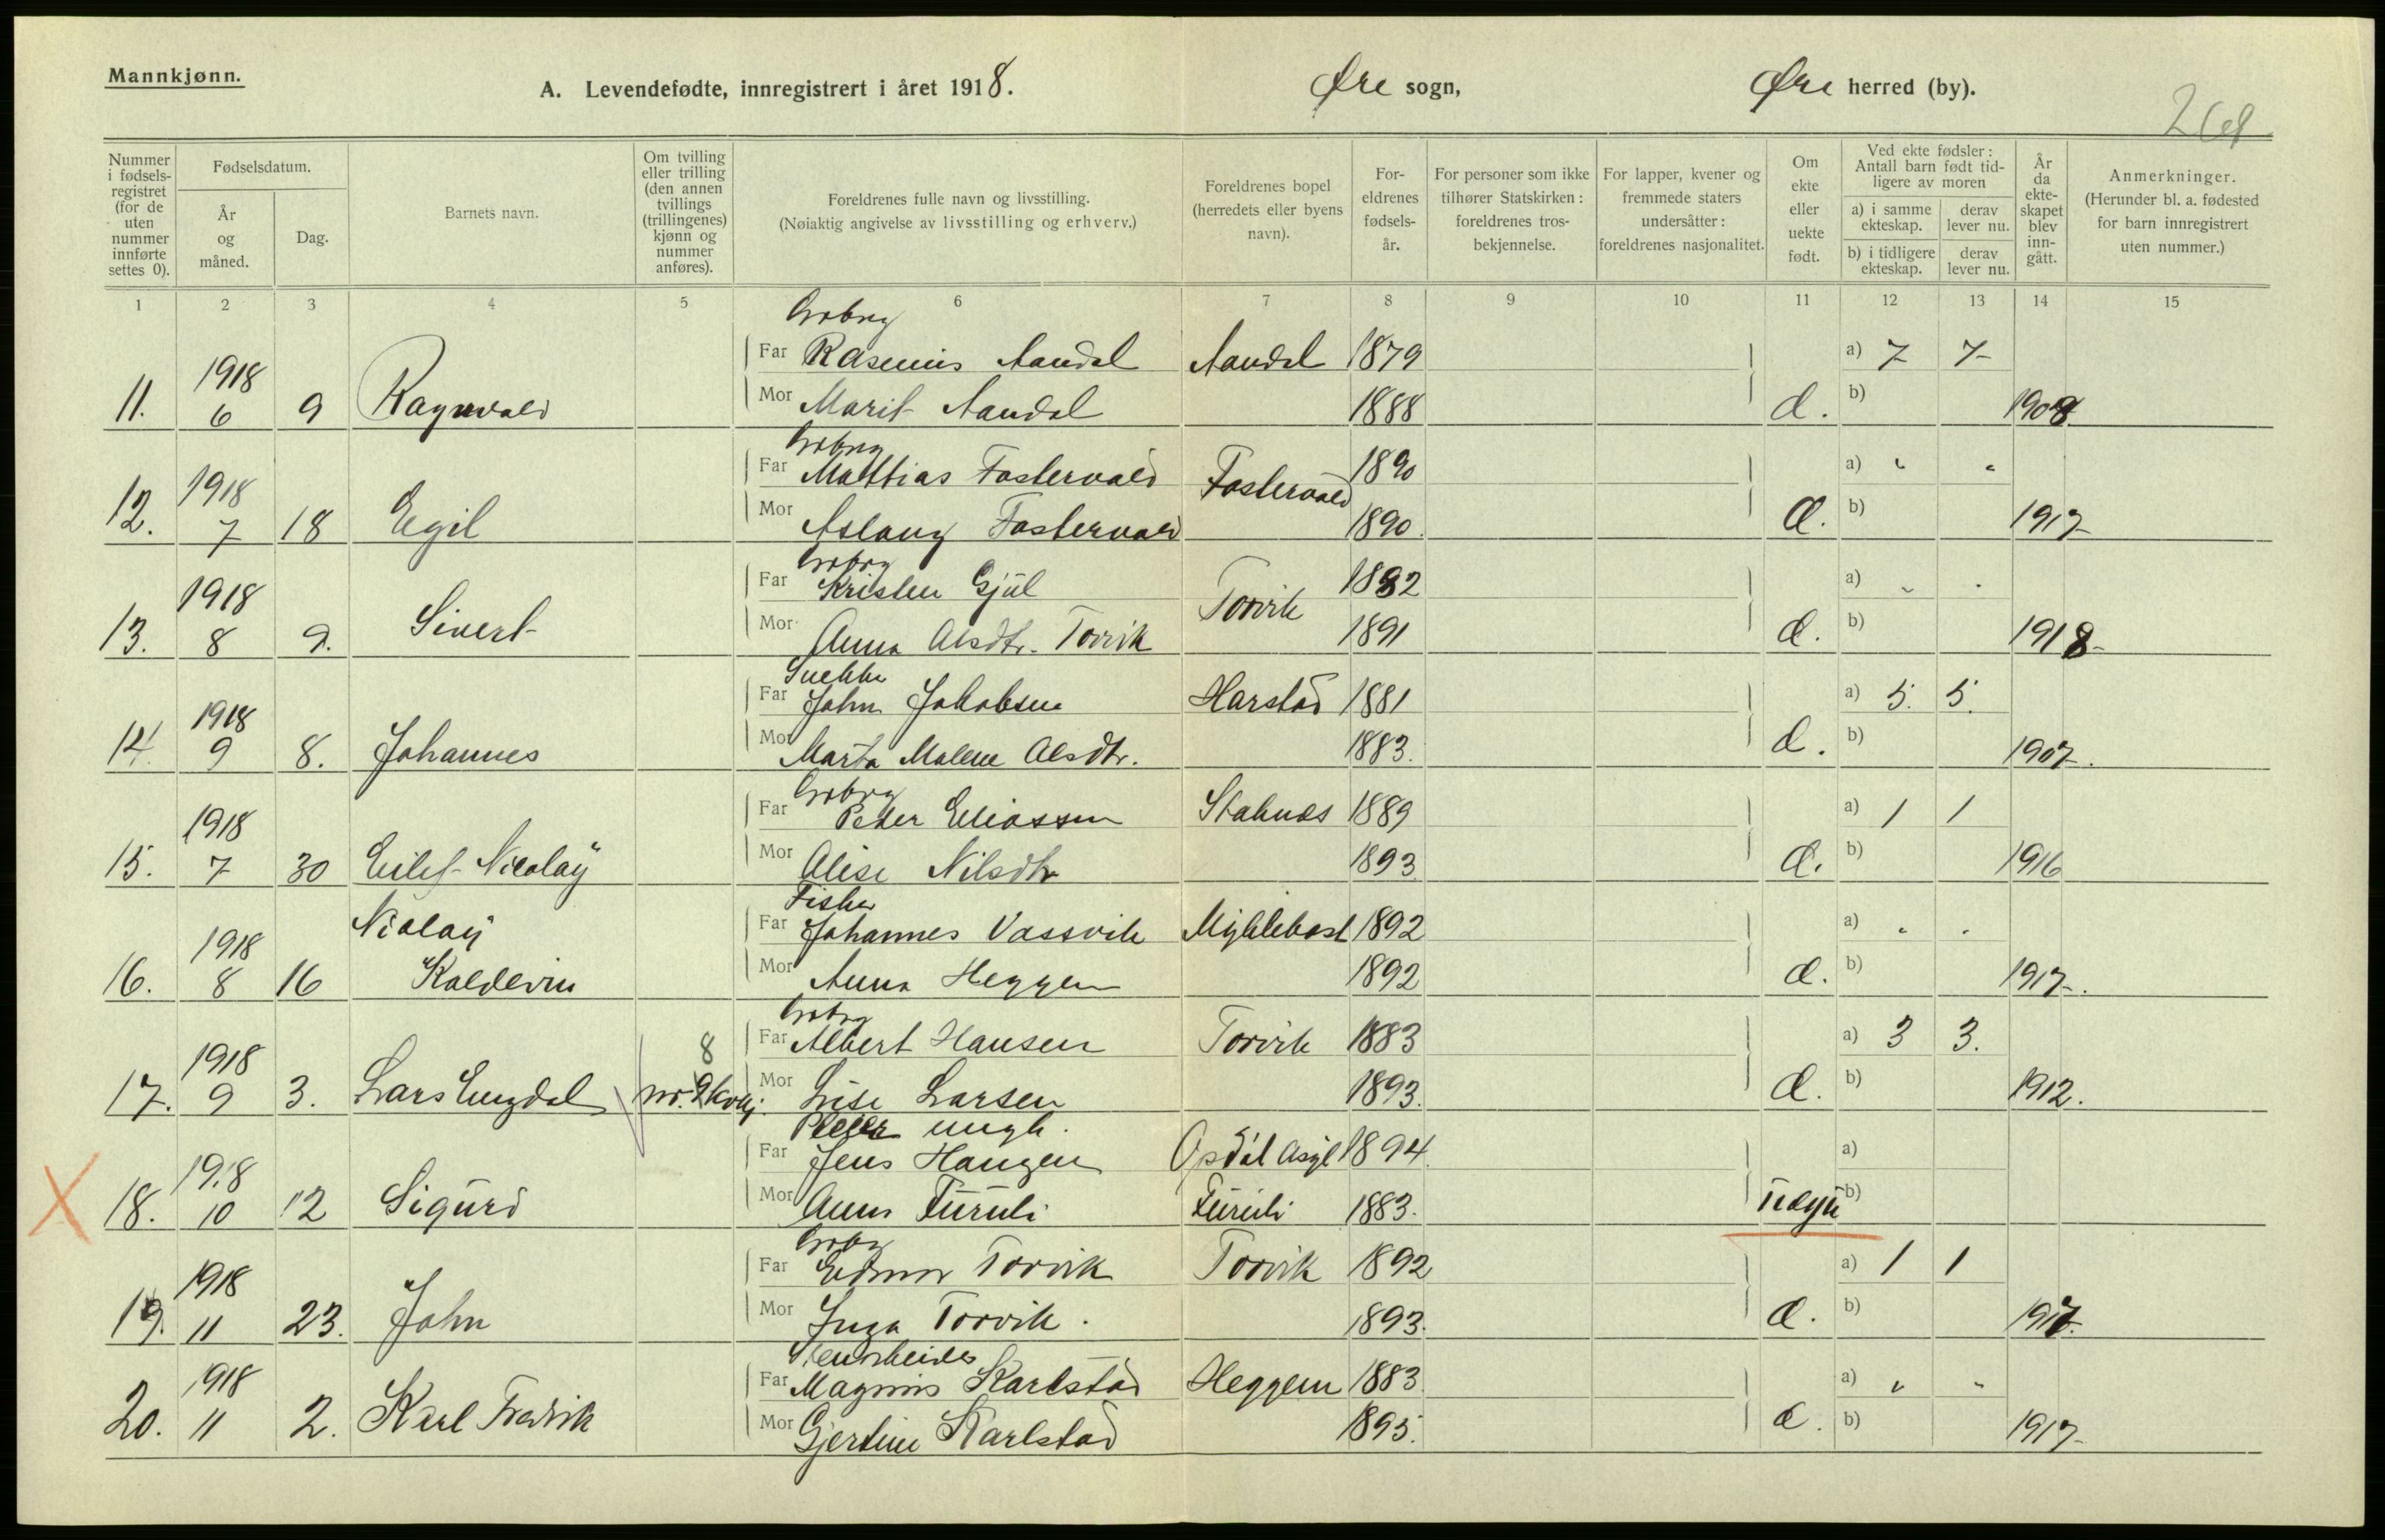 Mannkjønn.
A. Levendefødte, innregistrert i året 1918. Øre sogn, Øre herred (by).
Nummer i fødsels-registret (for de uten nummer innførte settes 0).
Fødselsdatum.
År og måned.
Dag.
Barnets navn.
Om tvilling eller trilling (den annen tvillings (trillingenes) kjønn og nummer anføres).
Foreldrenes fulle navn og livsstilling.
(Nøiaktig angivelse av livsstilling og erhverv.)
Foreldrenes bopel (herredets eller byens navn).
For-eldrenes fødsels-år.
For personer som ikke tilhører Statskirken: foreldrenes tros-bekjennelse.
For lapper, kvener og fremmede staters undersåtter: foreldrenes nasjonalitet.
Om ekte eller uekte født.
Ved ekte fødsler: Antall barn født tid-ligere av moren
a) i samme ekteskap.
derav lever nu.
b) i tidligere ekteskap.
derav lever nu.
År da ekte-skapet blev inn-gått.
Anmerkninger.
(Herunder bl. a. fødested for barn innregistrert uten nummer.)
1 2 3 4 5 6 7 8 9 10 11 12 13 14 15
Far Rasmus Aandal Aandal 1879 a) 7 7
11. 1918 6 9 Ragnvald Mor Marit Aandal 1888 b) 1908
Far Mattias Fostervold Fostervold 1890 a) " "
12. 1918 7 18 Egil Mor Aslaug Fostervold 1890 b) 1917
Far Kristen Gjül Torvik 1882 a) " "
13. 1918 8 9. Sivert Mor Anna Olsdtr. Torvik 1891 b) 1918
Snekker
Far John Jakobsen Harstad 1881 a) 5. 5.
14. 1918 9 8. Johannes Mor Marta Malene Olsdtr. 1883. b) 1907.
Far Peder Eliassen Staknes 1889 a) 1 1
15. 1918 7 30 Eilef Nicolaÿ Mor Olise Nilsdtr 1893 b) 1916
Fisker
Far Johannes Vassvik Myklebost 1892 a) " "
16. 1918 8 16 Nicolaÿ Koldevin Mor Anna Heggem 1892 b) 1917.
Far Albert Hansen Torvik 1883 a) 3 3.
17. 1918 9 3. Lars Engdal nr. 8 kvkj. Mor Lise Larsen 1893. b) 1912.
ungk.
Far Jens Haugen Opdøl Asyl 1894. a)
18. 1918 10 12 Sigurd Mor Anna Furuli Furuli 1883. b)
Far Edmor Torvik Torvik 1892 a) 1 1
19. 1918 11 23. John Mor Inga Torvik. 1893. b) 1917
Far Magnus Karlstad Heggem 1883 a) " "
20. 1918 11 2. Karl Fredrik Mor Gjertine Karlstad 1895. b) 1917